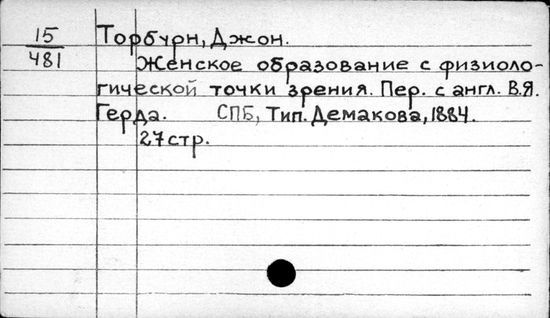 15
481
Торбурн, Джон.
Женское образование с физиоло-
гической точки зрения. Пер. с англ. В.Я.
Герда. СПБ, Тип. Демакова, 1884.
27 стр.